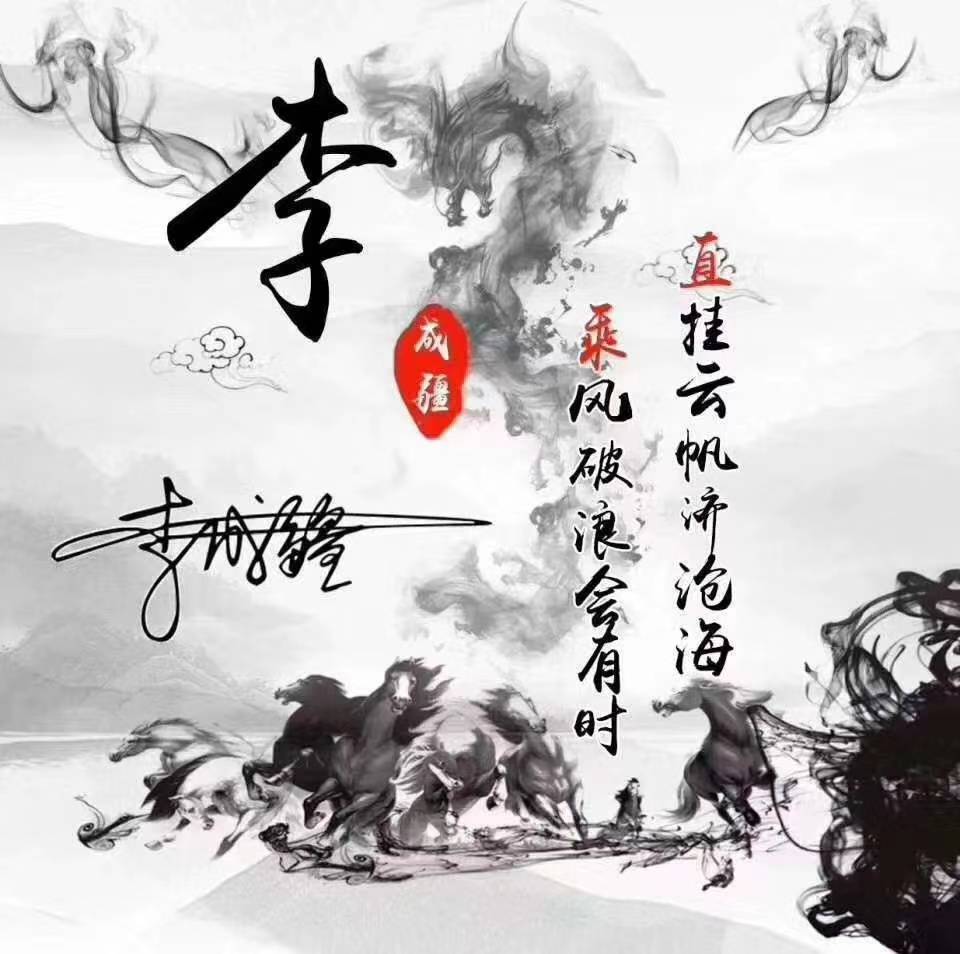 李
成疆
李成疆
直挂云帆济沧海
乘风破浪会有时